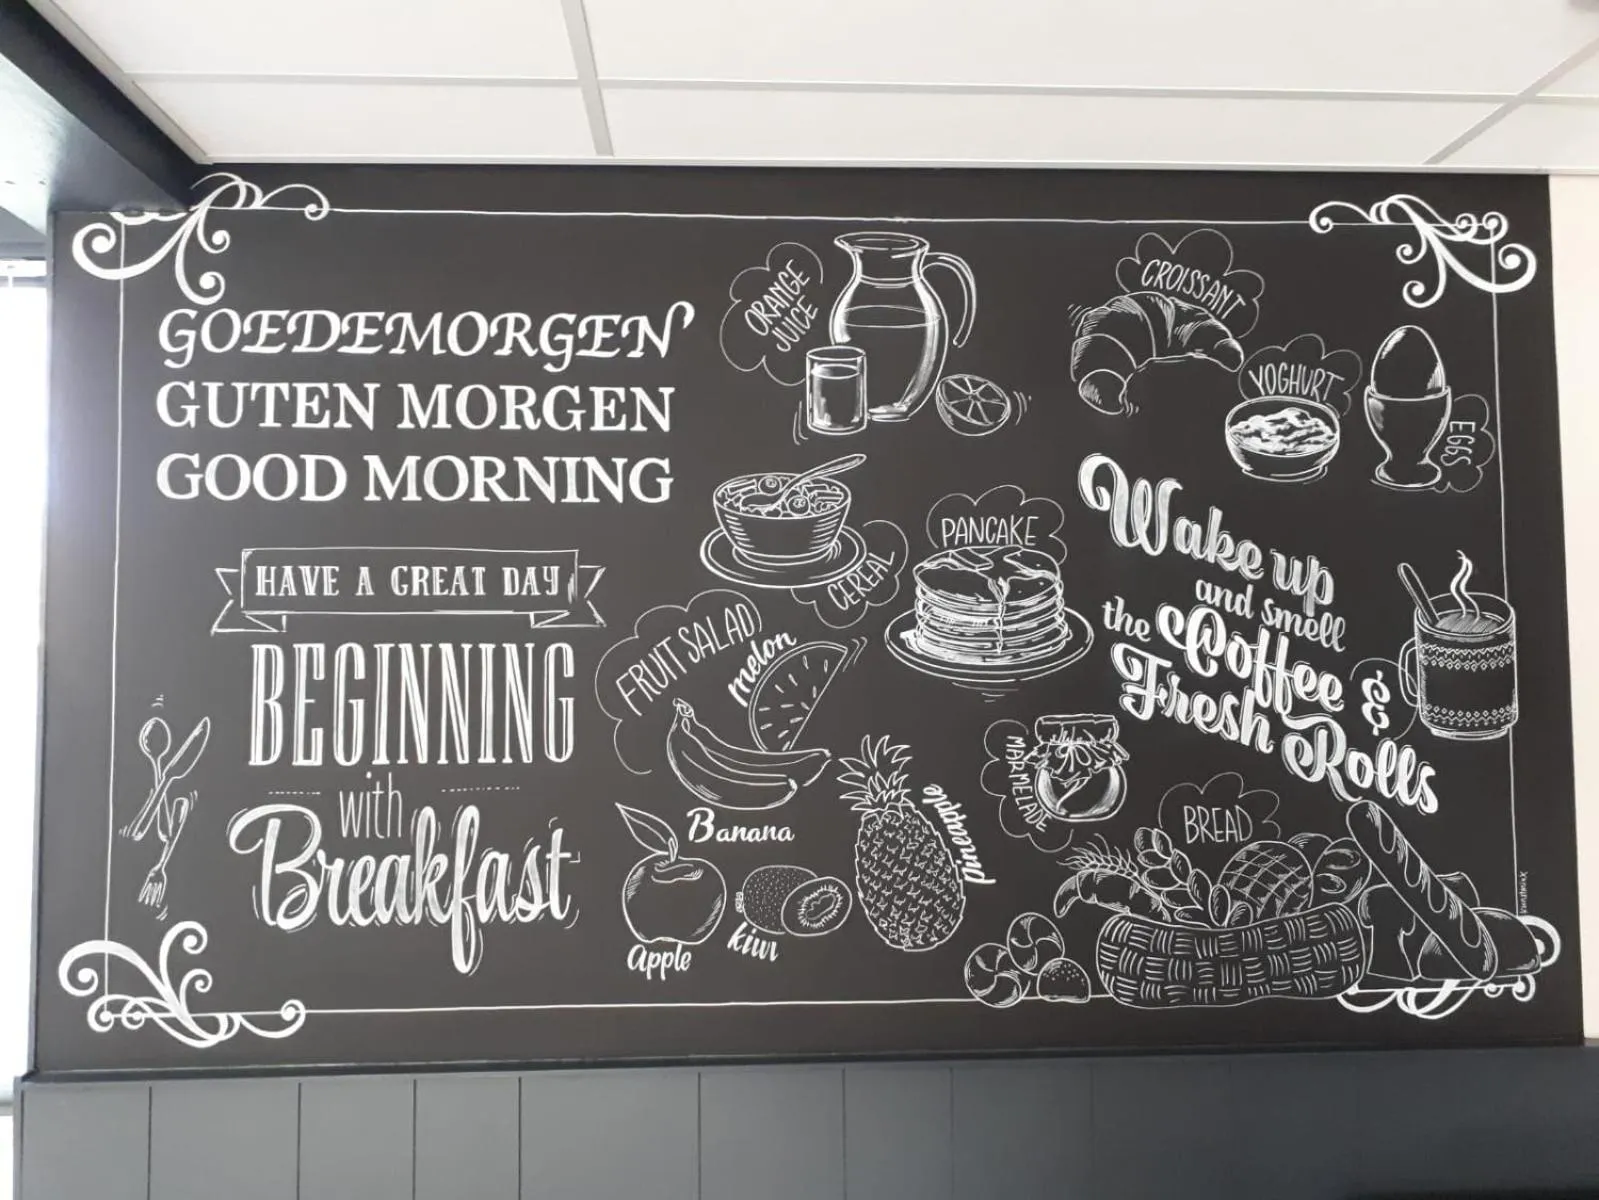 GOEDEMORGEN
GUTEN MORGEN
GOOD MORNING
HAVE A GREAT DAY
BEGINNING
with
Breakfast
ORANGE
JUICE
CROISSANT
YOGHURT
EGGS
CEREAL
PANCAKE
FRUIT SALAD
melon
Banana
Apple
kiwi
pineapple
Wake up
and smell
the Coffee &
Fresh Rolls
MARMELADE
BREAD